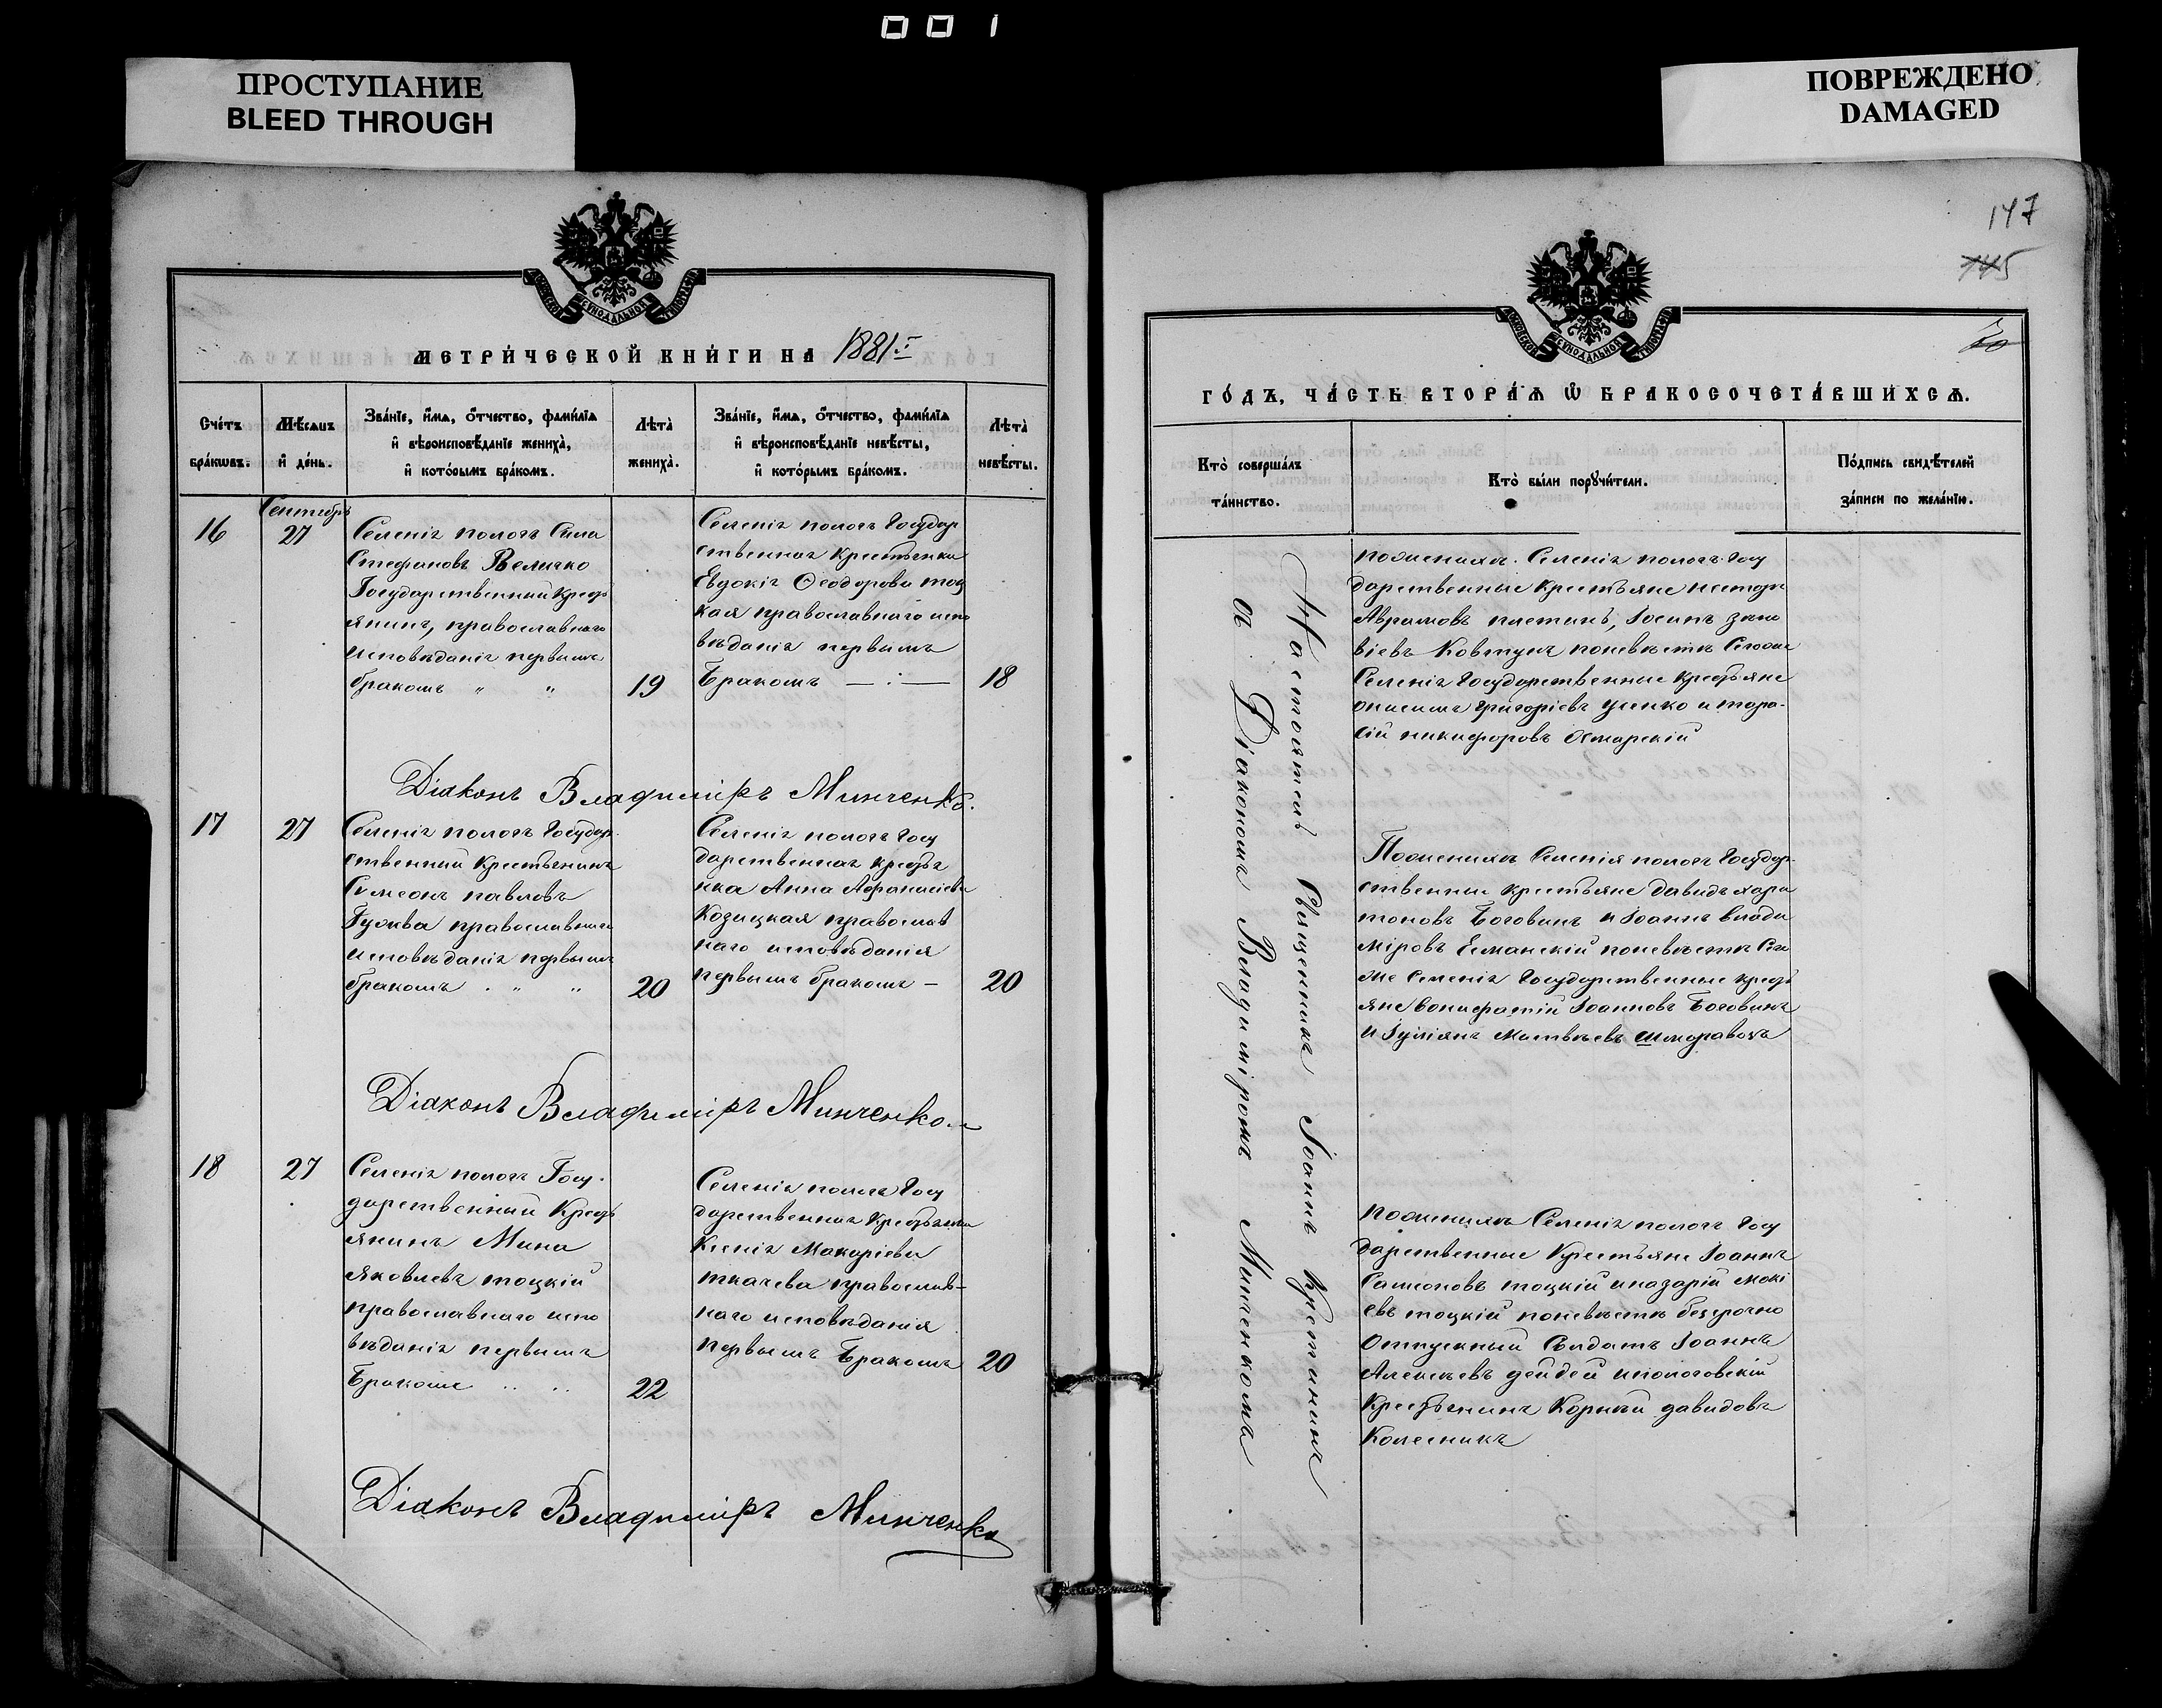 001
ПРОСТУПАНИЕ
BLEED THROUGH
ПОВРЕЖДЕНО
DAMAGED
МЕТРИ́ЧЕСКОЙ КНИ́ГИ НА 1881.
Сче́тъ бра́кѡвъ.
Мѣ́сѧцъ и҆ де́нь.
Зва́нїе, и҆́мѧ, ѻ҆́тчество, фами́лїѧ
и҆ вѣроисповѣ́данїе жениха̀,
и҆ кото́рымъ бра́комъ.
Лѣта̀ жениха̀.
Зва́нїе, и҆́мѧ, ѻ҆́тчество, фами́лїѧ
и҆ вѣроисповѣ́данїе невѣ́сты,
и҆ кото́рымъ бра́комъ.
Лѣта̀ невѣ́сты.
16
Сентябрь
27
Селенія пологъ Сила
Стефановъ Величко
Государственный Кресть
янинъ, православнаго
исповѣданія первымъ
бракомъ " "
19
Селенія пологъ Государ
ственная крестьянка
Евдокія Ѳеодорова тоц
кая православнаго испо
вѣданія первымъ
Бракомъ — . —
18
Діаконъ Владиміръ Минченко.
17
27
Селенія пологъ Государ
ственный Крестьянинъ
Симеонъ павловъ
Гужва православнаго
исповѣданія первымъ
бракомъ . " "
20
Селенія пологъ Госу
дарственная крестья
нка Анна Афанасіева
Козицкая православ
наго исповѣданія
первымъ бракомъ —
20
Діаконъ Владиміръ Минченко
18
27
Селенія пологъ Госу
дарственный Кресть
янинъ Мина
Яковлевъ тоцкій
православнаго испо
вѣданія первымъ
Бракомъ .. ..
22
Селенія пологъ Госу
дарственная Крестьянка
Ксенія Макаріева
ткачева православ-
наго исповѣданія
первымъ Бракомъ
20
Діаконъ Владиміръ Минченко
147
145
ГО́ДЪ, ЧА́СТЬ ВТОРА́Ѧ Ѽ БРАКОСОЧЕТА́ВШИХСѦ.
Кто̀ соверша́лъ
та́инство.
Кто̀ бы́ли порꙋчи́тели.
По́дпись свидѣ́телей
за́писи по жела́нїю.
Настоятель Священникъ Іоаннъ Кретининъ
съ Діакономъ Владиміромъ Минченкомъ
поженихѣ. Селенія пологъ Госу
дарственные Крестьяне нестеръ
Аврамовъ плетинь, Іосипъ зино
віевъ Ковтунъ поневѣстѣ Сегоже
Селенія Государственные Крестьяне
онисимъ Григоріевъ усенко и тара-
сій никифоровъ Отарскій
Поженихѣ Селенія пологъ Государ-
ственные крестьяне давидъ хари
тоновъ Боговинъ и Іоаннъ влади
міровъ Есманскій поневѣстѣ Сего
же Селенія Государственные кресть
яне Вонифатій Іоанновъ Боговинъ
и Іуліянъ Матвѣевъ
поженихѣ Селенія пологъ Госу
дарственные Крестьяне Іоаннъ
Самсоновъ тоцкій иназарій мокі
евъ тоцкій поневѣстѣ безсрочно
Отпускный Солдатъ Іоаннъ
Алексѣевъ дейдей ипологовскій
Крестьянинъ Корній давидовъ
Колесникъ